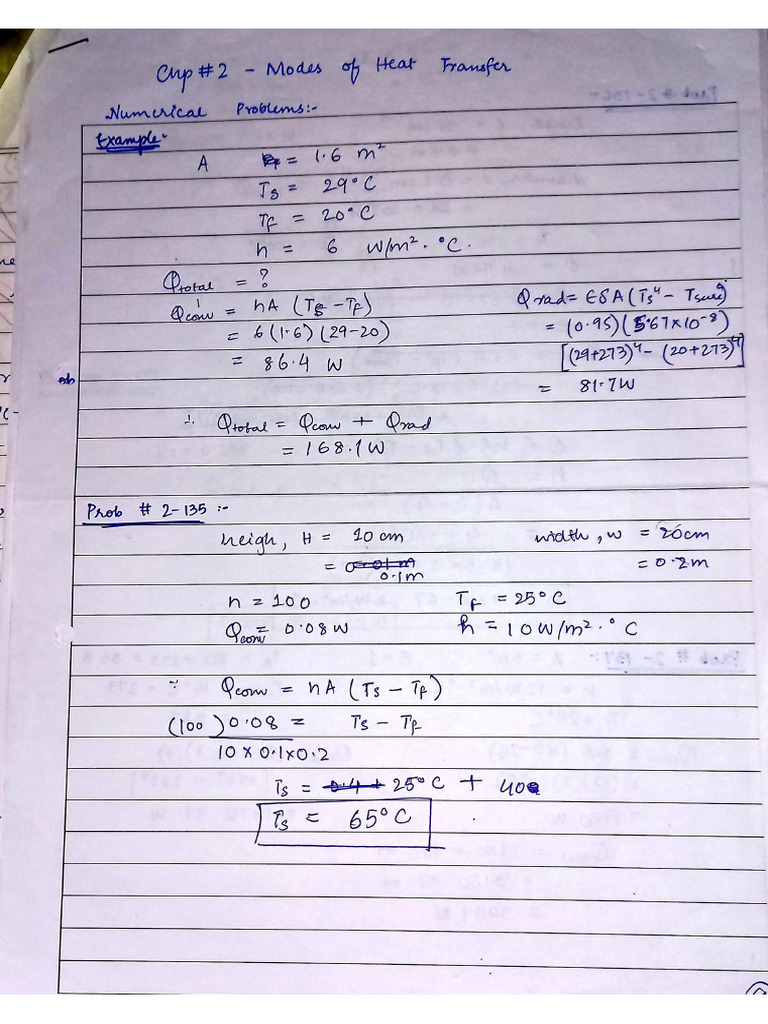 Chp #2 - Modes of Heat Transfer
Numerical Problems:-
Example:-
A = 1.6 m²
Ts = 29°C
Tf = 20°C
h = 6 W/m².°C.
Qtotal = ?
Qconv = hA (Ts - Tf)
= 6(1.6)(29-20)
= 86.4 W
Qrad = ЄδA(Ts⁴ - Tsurr⁴)
= (0.95)(5.67x10⁻⁸)
[(29+273)⁴ - (20+273)⁴]
= 81.7W
∴ Qtotal = Qconv + Qrad
= 168.1W
Prob # 2-135 :-
heigh, H = 10 cm width, w = 20cm
= 0.1m = 0.2m
n = 100 Tf = 25°C
Qconv = 0.08W h = 10W/m².°C
∵ Qconv = hA (Ts - Tf)
(100) 0.08 = Ts - Tf
10 x 0.1 x 0.2
Ts = 25°C + 40
Ts = 65°C